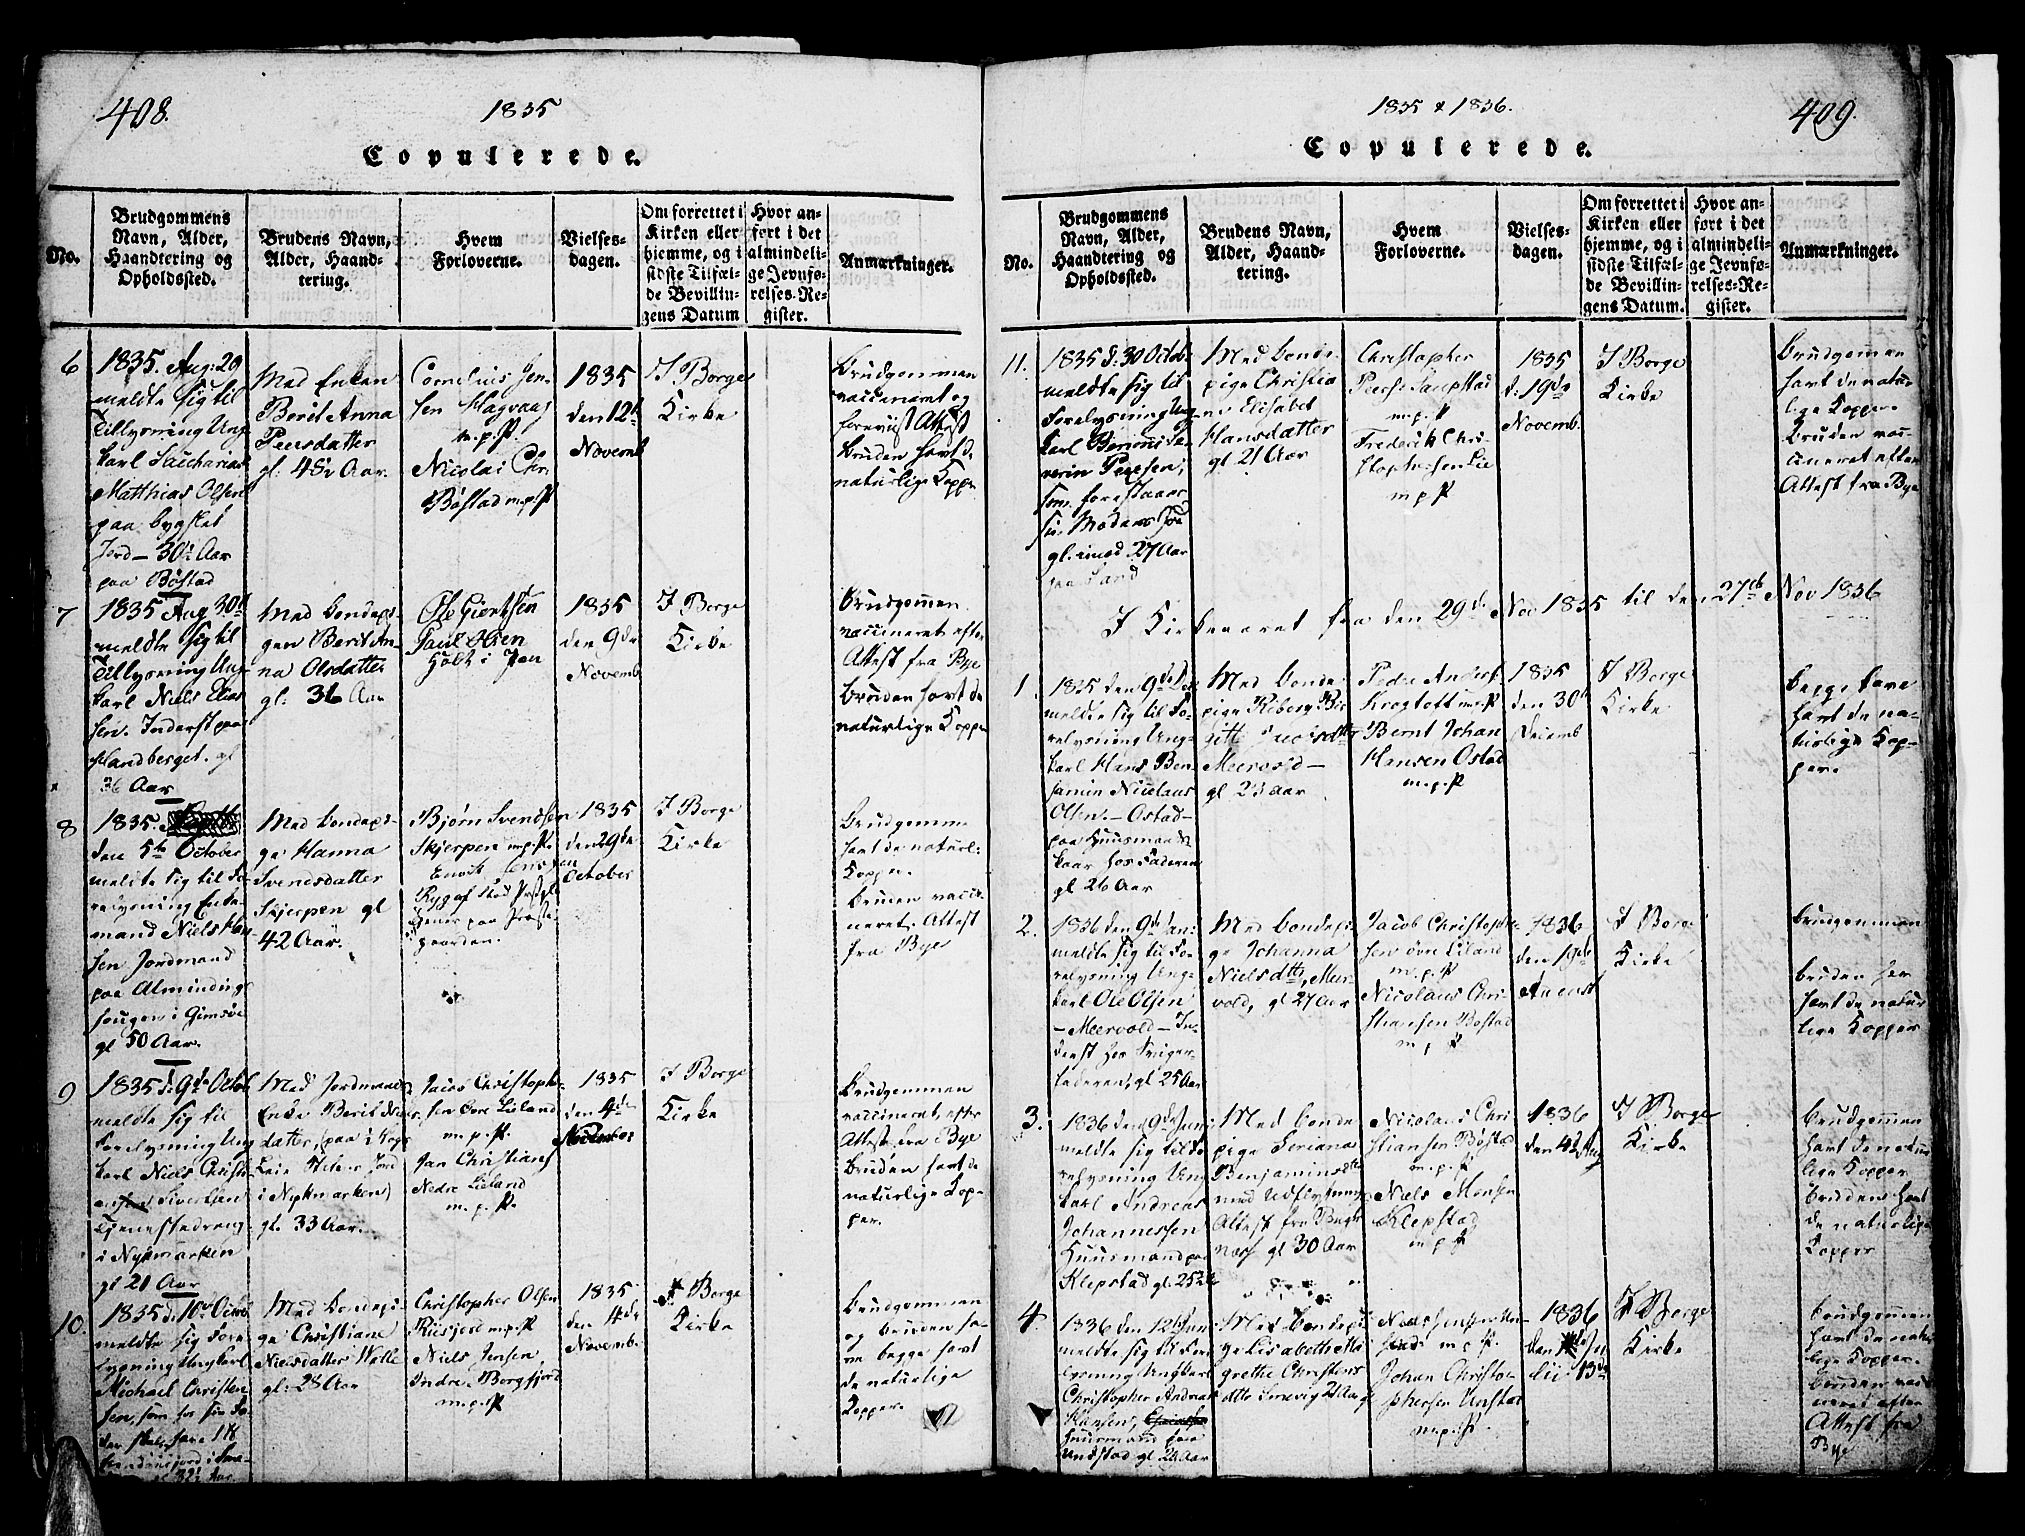 408.
1835
Copulerede.
No.
Brudgommens
Navn, Alder,
Haandtering og
Opholdssted.
Brudens Navn,
Alder, Haand-
tering.
Hvem
Forloverne.
Vielses-
dagen.
Om forrettet i
Kirken eller
hjemme, og i
sidste Tilfæl-
de Bevillin-
gens Datum
Hvor an-
ført i det
almindeli-
ge Jevnfø-
relses-Re-
gister.
Anmærkninger.
6
1835. Aug: 29
meldte sig til
Tillysning Ung-
karl
Matthias Olsen
paa bygslet
Jord — 30½ Aar
paa Bøstad
Med Enken
Berit Anna
Peersdatter
gl. 48½ Aar.
Cornelius Jen-
sen Hagvaag
m.p.P.
Nicolai Chr:
Bøstad m.p.P
1835
den 12te
Novemb
I Borge
Kirke
Brudgommen
vaccineret og
foreviist Attest
bruden havt de
naturlige Kopper
7
1835 Aug 30te
meldte sig til
Tillysning Ung-
karl Niels Elias
sen. Inderst paa
Handberget. gl
36 Aar
Med bondepi-
gen Berit An-
na Olsdatter
gl: 36 Aar
Ole Giertsen
Paul Olsen
Holt i Pen
1835
den 9de
Novemb
I Borge
Kirke
Brudgommen
vaccineret efter
Attest fra Bye
bruden havt de
naturlige Kopper
8
1835.
den 5te October
meldte sig til Fo-
relysning Enke-
mand Niels Han-
sen Jordmand
paa Alminding
haugen i Gimsøe
gl 50 Aar.
Med bondepi-
ge Hanna
Svendsdatter
Skjerpen gl
42 Aar.
Bjørn Svendsen
Skjerpen m.p.P.
1835
den 29de
October
I Borge
Kirke
Brudgommen
havt de naturl:
Kopper.
bruden vacci-
neret. Attest
fra Bye
9
1835 d: 9de Octob
meldte sig til
Forelysning Ung
karl Niels Christi-
Sivertsen
Tjenestedreng
i Nykmarken
gl 21 Aar
Med Jordmands
Enke Berit Niels
datter, paa
i Nykmarken
gl. 33 Aar.
Jacob Christoph-
sen Øvre Lieland
m.p.P.
Jan Christians
Nedre Lieland
m.p.P.
1835
den 4de
November
I Borge
Kirke
Brudgommen
vaccineret, efter
Attest fra Bye
bruden havt de
naturlige Kop-
per.
10.
1835 d: 10de Octob
meldte sig Fore
lysning Ungkarl
Michael Christen
sen, som for sin Fa-
der
Med Bondepi-
ge Christiane
Nielsdatter Wolle
gl: 28 Aar
Christopher Olsen
Riisjord m.p.P
Niels Jensen
Indre Borgfjord
m.p.P
1835
den 4de
Novemb.
I Borge
Kirke
Brudgommen
og bruden ha-
ve begge havt
de naturlige
Kopper.
1835 & 1836.
409.
Copulerede.
No.
Brudgommens
Navn, Alder,
Haandtering og
Opholdssted.
Brudens Navn,
Alder, Haand-
tering.
Hvem
Forloverne.
Vielses-
dagen.
Om forrettet i
Kirken eller
hjemme, og i
sidste Tilfæl-
de Bevillin-
gens Datum.
Hvor an-
ført i det
almindeli-
ge Jevnfø-
relses-Re-
gister.
Anmærkninger.
11.
1835 d: 30 Octob:
meldte sig til
Forelysning Ung
karl Benoni Se-
verin Pedersen,
som forestaaer
sin Moders Jord
gl. imod 27 Aar
paa Sand
Med bonde-
pige Christia
ne Elisabet
Hansdatter
gl 21 Aar
Christopher
m.p.P
Frederik Chri-
stophersen Lie
m.p.P
1835
d: 19de
Novemb.
I Borge
Kirke
Brudgommen
havt de natur-
lige Kopper.
Bruden vac-
cineret efter
Attest fra Bye
I Kirkeaaret fra den 29de Nov 1835 til den 27de Nov 1836
1.
1835 den 9de Dec
meldte sig til Fo-
relysning Ung-
karl Hans Ben-
jamin Nicolaus
Olsen. — Ostad —
paa Huusmands
kaar hos Faderen
gl 26 Aar
Med bonde-
pige Riberg Bir-
gitte Jacobsdtr
Meervold —
gl 23 aar
Peder Anders:
Krogtoft m.p.P
Bernt Johan
Hansen Ostad
m.p.P
1835
den 30te
Decemb
I Borge
Kirke
begge have
havt de na-
turlige Kop-
per.
2.
1836 den 9de Jan:
meldte sig til Fo-
relysning Ung-
karl Ole Olsen
— Meervold — In-
derst hos Sviger-
faderen, gl 25 Aar
Med bondepi-
ge Johanna
Nielsdtr, Meer-
vold, gl 27 Aar
Jacob Christoph-
sen øvre Liland
m.p.P
Nicolaus Chri-
stiansen Bøstad
m.p.P
1836
den 19de
August
I Borge
Kirke
Brudgommen
bruden her
havt de natur
lige Kopper
3.
1836 den 9de Jun:
meldte sig til Fo
relysning Ung
karl Andreas
Johannessen
Huusmand paa
Klepstad gl. 25
Med bonde
pige Seriana
Benjaminsdtr
med Udflytnings
Attest fra
gl 30 Aar
Nicolaus Chri-
stiansen Bøstad
m.p.P
Niels Monsen
Klepstad
m.p.P
1836
den 4de Aug
I Borge
Kirke
Brudgommen
havt de natur
lige Kopper
bruden havt
de naturlige
Kopper
4
1836 den 12te Jun:
meldte sig til Fore
lysning Ungkarl
Christopher Andreas
Hansen,
Huusmand paa
Undstad gl 26 Aar
Med bondepi
ge Lisabeth Ma
grethe Christens
datter
m.p.P.
Johan Christo-
phersen Unstad
m.p.P.
1836
den
Julii 13de
I Borge
Kirke
Brudgommen
havt de natur
lige Kopper.
bruden vacci
neret efter
Attest fra
Bye